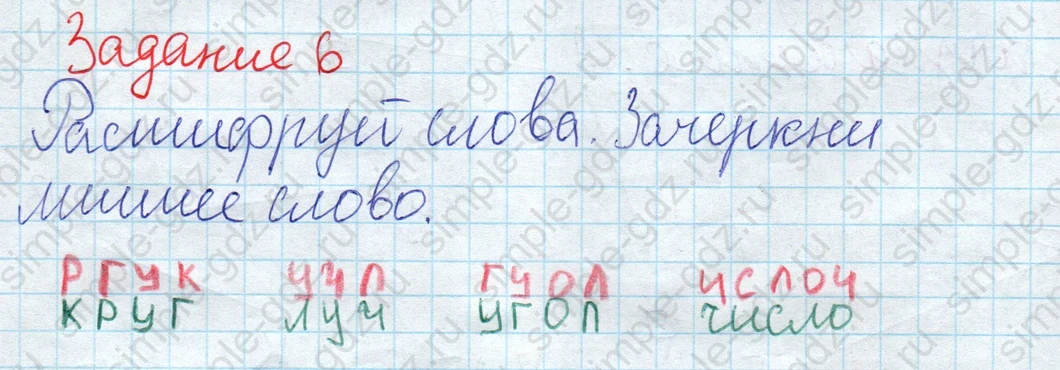 Задание 6
Расшифруй слова. Зачеркни
лишнее слово.
РГУК УЧЛ ГУОЛ ИСЛОЧ
КРУГ ЛУЧ УГОЛ ЧИСЛО